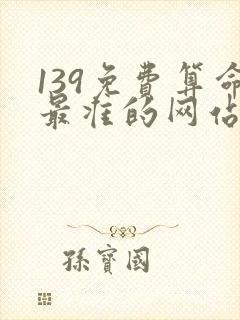 139免费算命
最准的网占
孫寳國